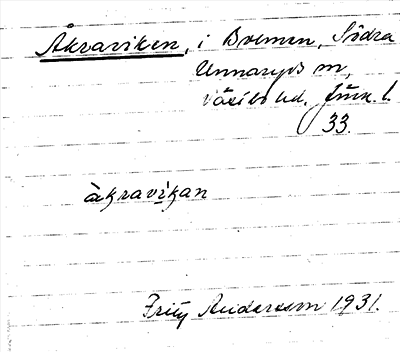 Åkraviken, i Bolmen, Södra
Unnaryds sn,
Västbo hd. Jönk. l.
33.
àkravikan
Fritz Andersson 1931.